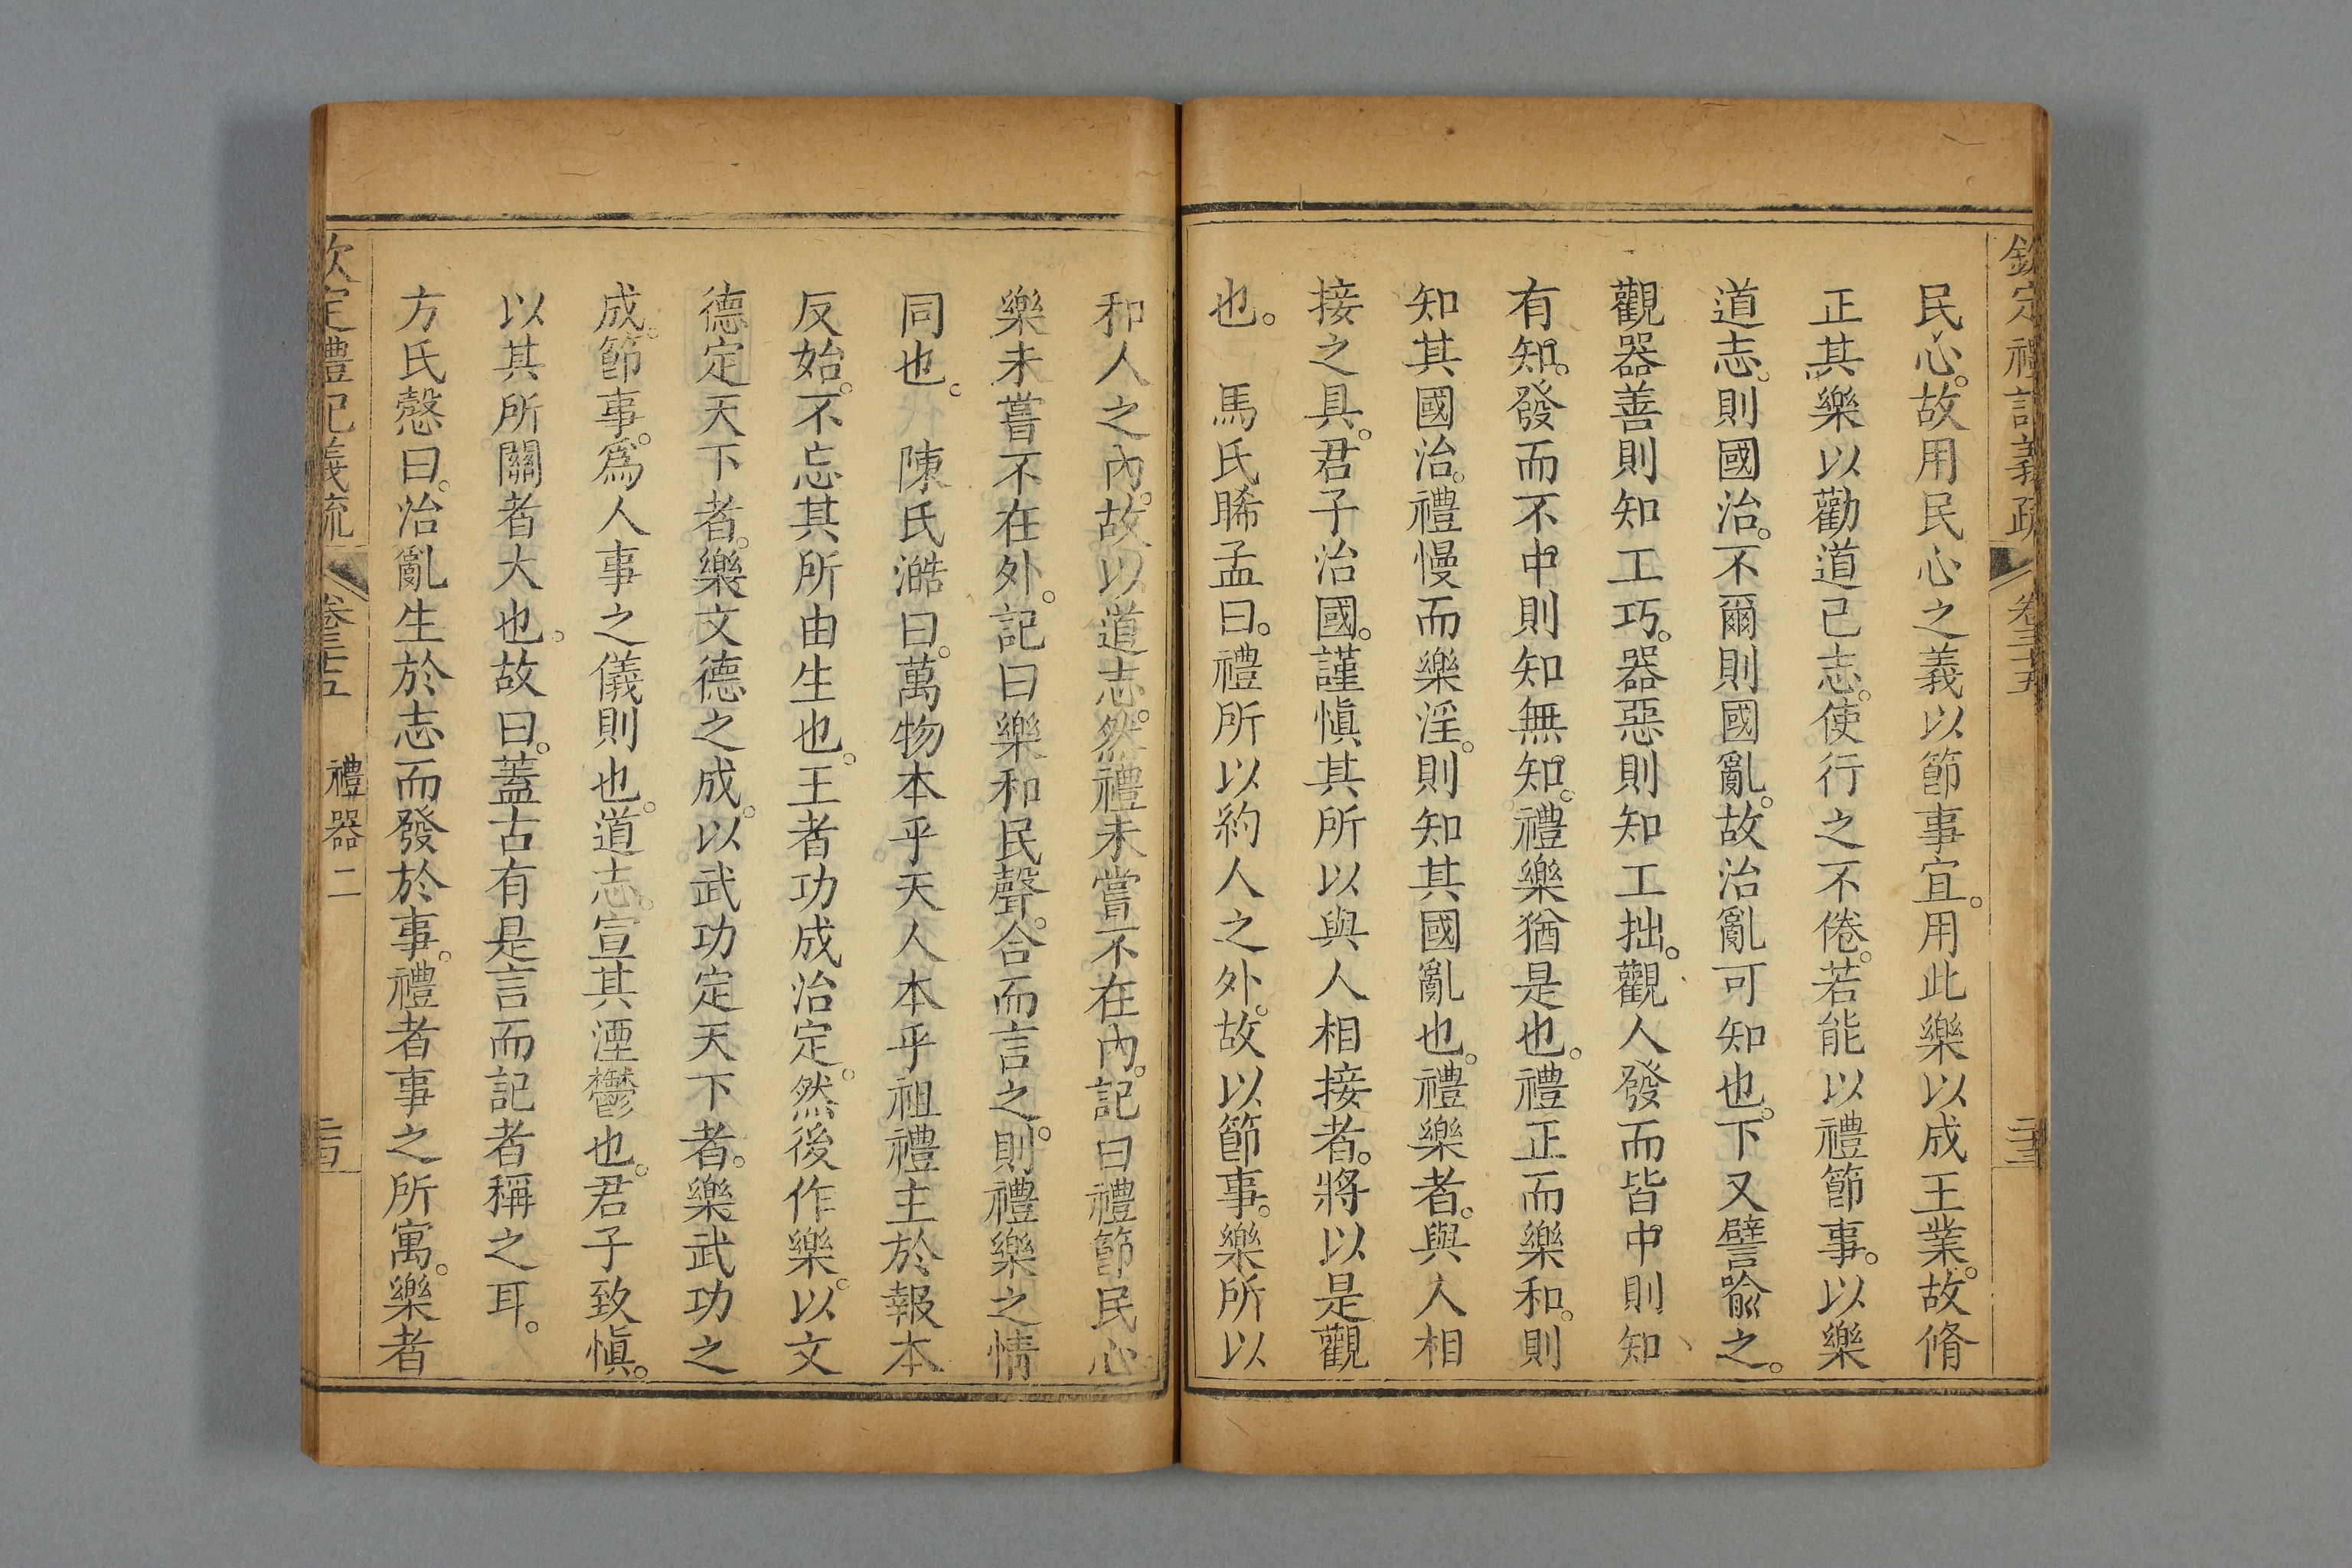 欽定禮記義疏 卷三十五 二十三
民心。故用民心之義以節事宜。用此樂以成王業。故脩
正其樂以勸道已志。使行之不倦。若能以禮節事。以樂
道志。則國治。不爾則國亂。故治亂可知也。下又譬喻之。
觀器善則知工巧。器惡則知工拙。觀人發而皆中則知
有知。發而不中則知無知。禮樂猶是也。禮正而樂和。則
知其國治。禮慢而樂淫。則知其國亂也。禮樂者。與人相
接之具。君子治國。謹慎其所以與人相接者。將以是觀
也。 馬氏睎孟曰。禮所以約人之外。故以節事。樂所以
和人之內。故以道志。然禮未嘗不在內。記曰禮節民心
樂未嘗不在外。記曰樂和民聲。合而言之。則禮樂之情
同也。 陳氏澔曰。萬物本乎天人本乎祖禮主於報本
反始。不忘其所由生也。王者功成治定。然後作樂。以文
德定天下者。樂文德之成。以武功定天下者。樂武功之
成。節事。爲人事之儀則也。道志。宣其湮鬱也。君子致慎。
以其所關者大也。故曰。蓋古有是言而記者稱之耳。
方氏慤曰。治亂生於志而發於事。禮者事之所寓。樂者
欽定禮記義疏 卷三十五 禮器二 二十四